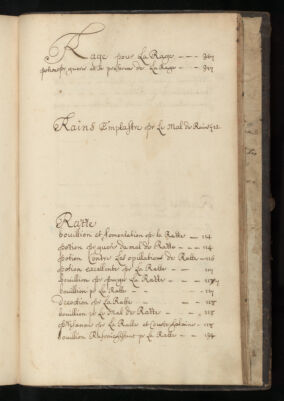 Rage pour La Rage
potion pr querir et se preserver de La Rage
Rains Emplastre pr Le Mal de Rains
Ratte
bouillion et fomentation pr la Ratte 114
potion pr querir du mal de Ratte 114
potion Contre Les opillations de Ratte 116
potion excellente pr La Ratte
bouillion pr purger La Ratte
bouillion pr La Ratte
decoction pr La Ratte 118
bouillion pr Le Mal de Ratte 118
ptisanne pr La Ratte et 118
bouillion pr La Ratte 134